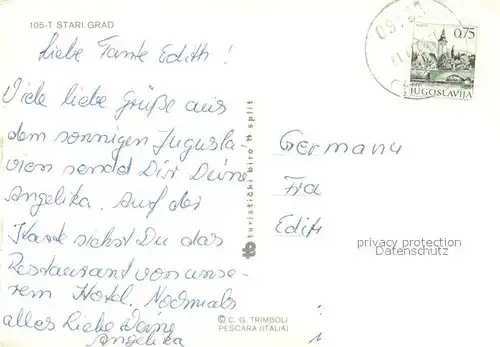 105-T STARI GRAD
Liebe Tante Edith!
Viele liebe Grüße aus
dem sonnigen Jugosla-
wien sendet Dir Deine
Angelika. Auf der
Karte siehst Du das
Restaurant von unse-
rem Hotel. Nochmals
alles Liebe Deine
Angelika
turistički biro tb split
tb
© C. G. TRIMBOLI
PESCARA (ITALIA)
0,75
JUGOSLAVIJA
Germany
Fra
Edith
privacy protection
Datenschutz